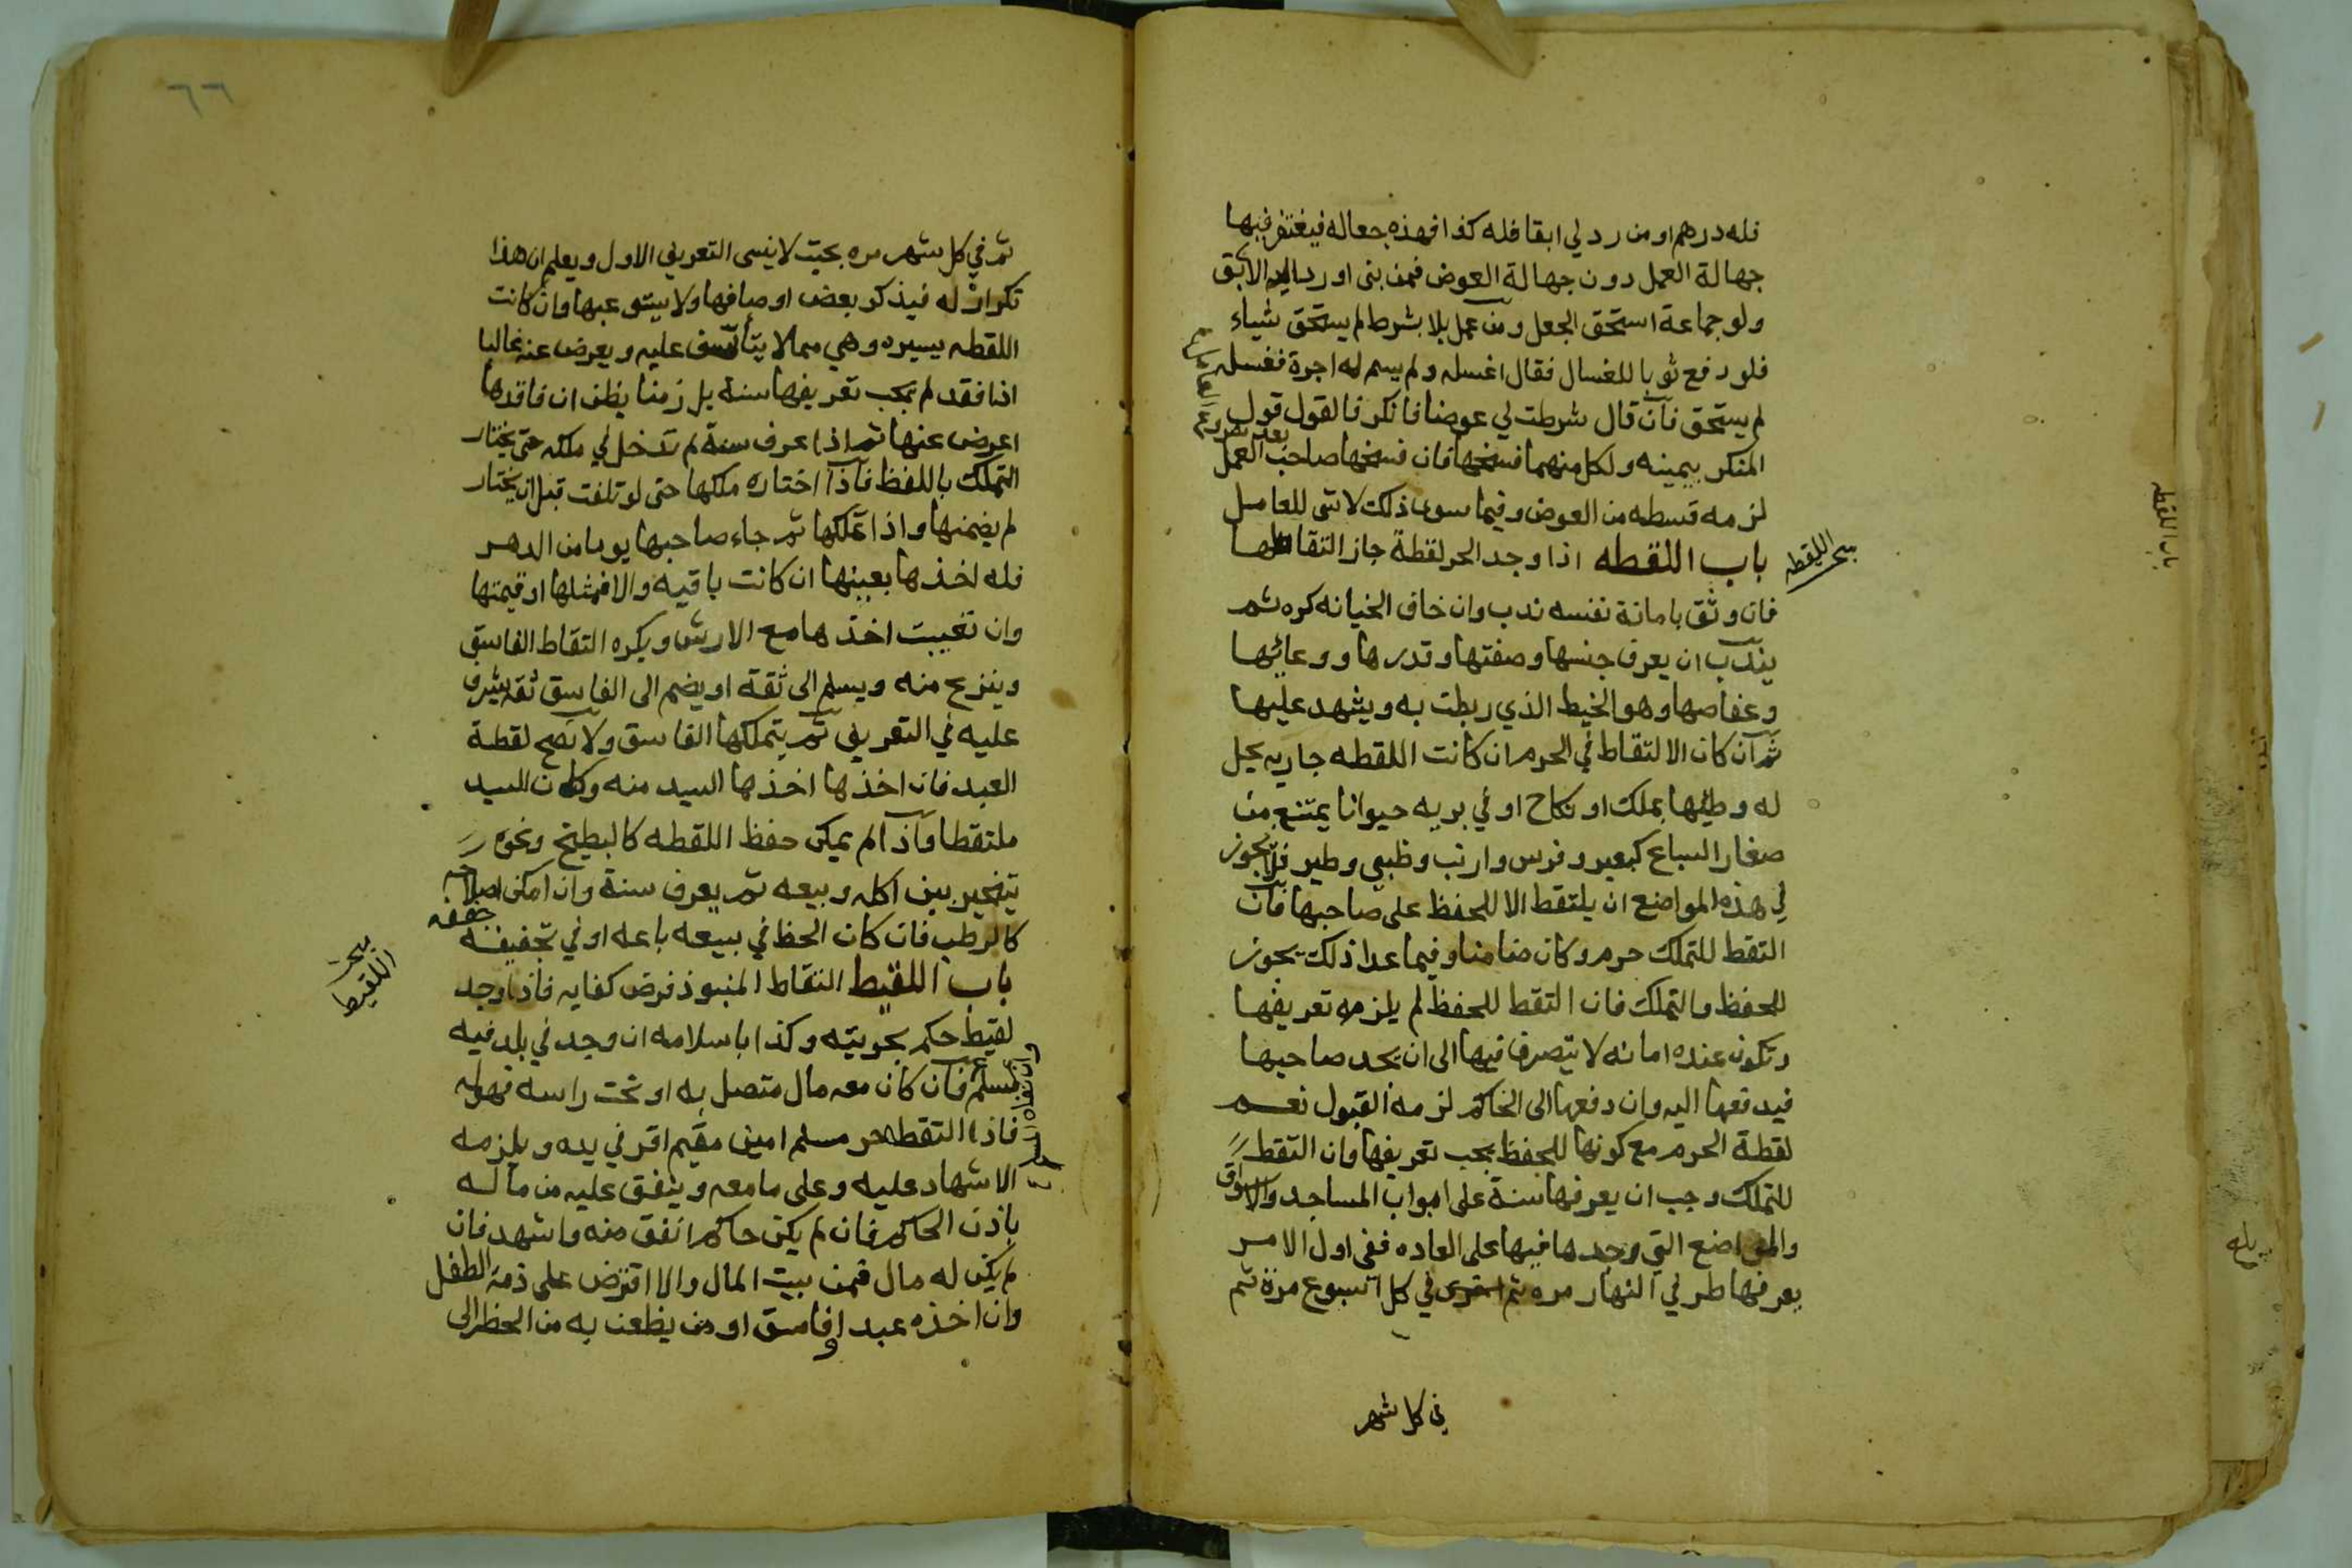 فله درهم او من رد لي ابقا فله كذا فهذه جعاله فيغتفر فيها
جهالة العمل دون جهالة العوض فمن بنى او رد اليه الابق
ولو جماعة استحق الجعل ومن عمل بلا بشرط لم يستحق شياء
فلو دفع ثوبا للغسال فقال اغسله ولم يسم له اجرة فغسله
لم يستحق فان قال شرطت لي عوضا فانكر فالقول قول
المنكر بيمينه ولكل منهما فسخها فان فسخها صاحب العمل
لزمه قسطه من العوض وفيما سوى ذلك لا شى للعامل
باب اللقطه اذا وجد الحر لقطة جاز التقاطها
بحر اللقطه
فان وثق بامانة نفسه ندب وان خاف الخيانه كره ثم
يندب ان يعرف جنسها وصفتها وقدرها ووعائها
وعفاصها وهو الخيط الذي ربطت به ويشهد عليها
ثم ان كان الالتقاط في الحرم ان كانت اللقطه جاريه يحل
له وطئها بملك او نكاح او في بريه حيوانا يمتنع من
صغار السباع كبعير وفرس وارنب وظبي وطير فلا يجوز
في هذه المواضع ان يلتقط الا للحفظ على صاحبها فان
التقط للتملك حرم وكان ضامنا وفيما عدا ذلك يجوز
للحفظ والتملك فان التقط للحفظ لم يلزمه تعريفها
وتكون عنده امانه لا يتصرف فيها الى ان يجد صاحبها
فيدفعها اليه وان دفعها الى الحاكم لزمه القبول نعم
لقطة الحرم مع كونها للحفظ يجب تعريفها وان التقط
للتملك وجب ان يعرفها سنة على ابواب المساجد والاسواق
والمواضع التي وجدها فيها على العاده ففي اول الامر
يعرفها طرفي النهار مره ثم في كل اسبوع مرة ثم
في كل شهر
٦٦
ثم في كل شهر مره بحيث لا ينسى التعريف الاول ويعلم ان هذا
تكرار له فيذكر بعض اوصافها ولا يستوعبها وان كانت
اللقطه يسيره وهي مما لا يتأسف عليه ويعرض عنه غالبا
اذا فقد لم يجب تعريفها سنة بل زمنا يظن ان فاقدها
اعرض عنها ثم اذا عرف سنة لم تدخل في ملكه حتى يختار
التملك باللفظ فاذا اختاره ملكها حتى لو تلفت قبل ان يختار
لم يضمنها واذا تملكها ثم جاء صاحبها يوما من الدهر
فله اخذها بعينها ان كانت باقيه والا فمثلها او قيمتها
وان تعيبت اخذها مع الارش ويكره التقاط الفاسق
وينزع منه ويسلم الى ثقة او يضم الى الفاسق ثقه يشرف
عليه في التعريف ثم يتملكها الفاسق ولا تصح لقطة
العبد فان اخذها اخذها السيد منه وكان السيد
ملتقطا واذا لم يمكن حفظ اللقطه كالبطيخ ونحوه
يتخير بين اكله وبيعه ثم يعرف سنة وان امكن اصلاحه
كالرطب فان كان الحظ في بيعه باعه او في تجفيفه
جففه
باب اللقيط التقاط المنبوذ فرض كفايه فاذا وجد
بحر
اللقيط
لقيط حكم بحريته وكذا باسلامه ان وجد في بلد فيه
مسلم فان كان معه مال متصل به او تحت راسه فهو له
فاذا التقطه حر مسلم امين مقيم اقر في يده ويلزمه
الاشهاد عليه وعلى ما معه وينفق عليه من ماله
باذن الحاكم فان لم يكن حاكم انفق منه واشهد فان
لم يكن له مال فمن بيت المال والا اقترض على ذمة الطفل
وان اخذه عبد او فاسق او من يظعن به من الحظر الى
باب اللقطه